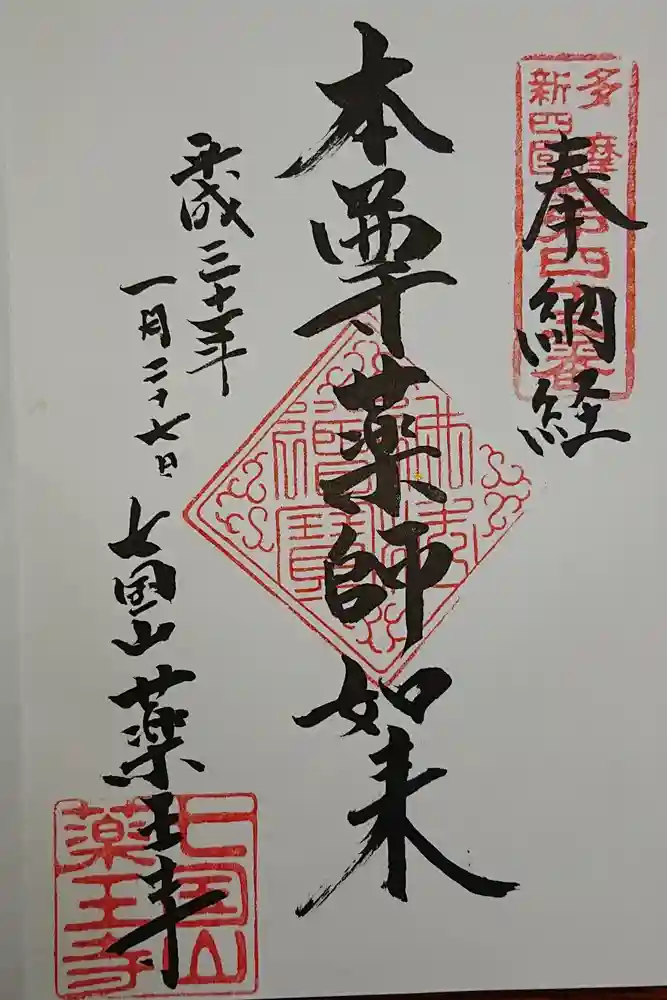 奉納経
多摩
新四国
第四
番
本尊薬師如来
佛法
僧寳
平成三十一年
一月二十七日
七国山薬王寺
七国山
薬王寺